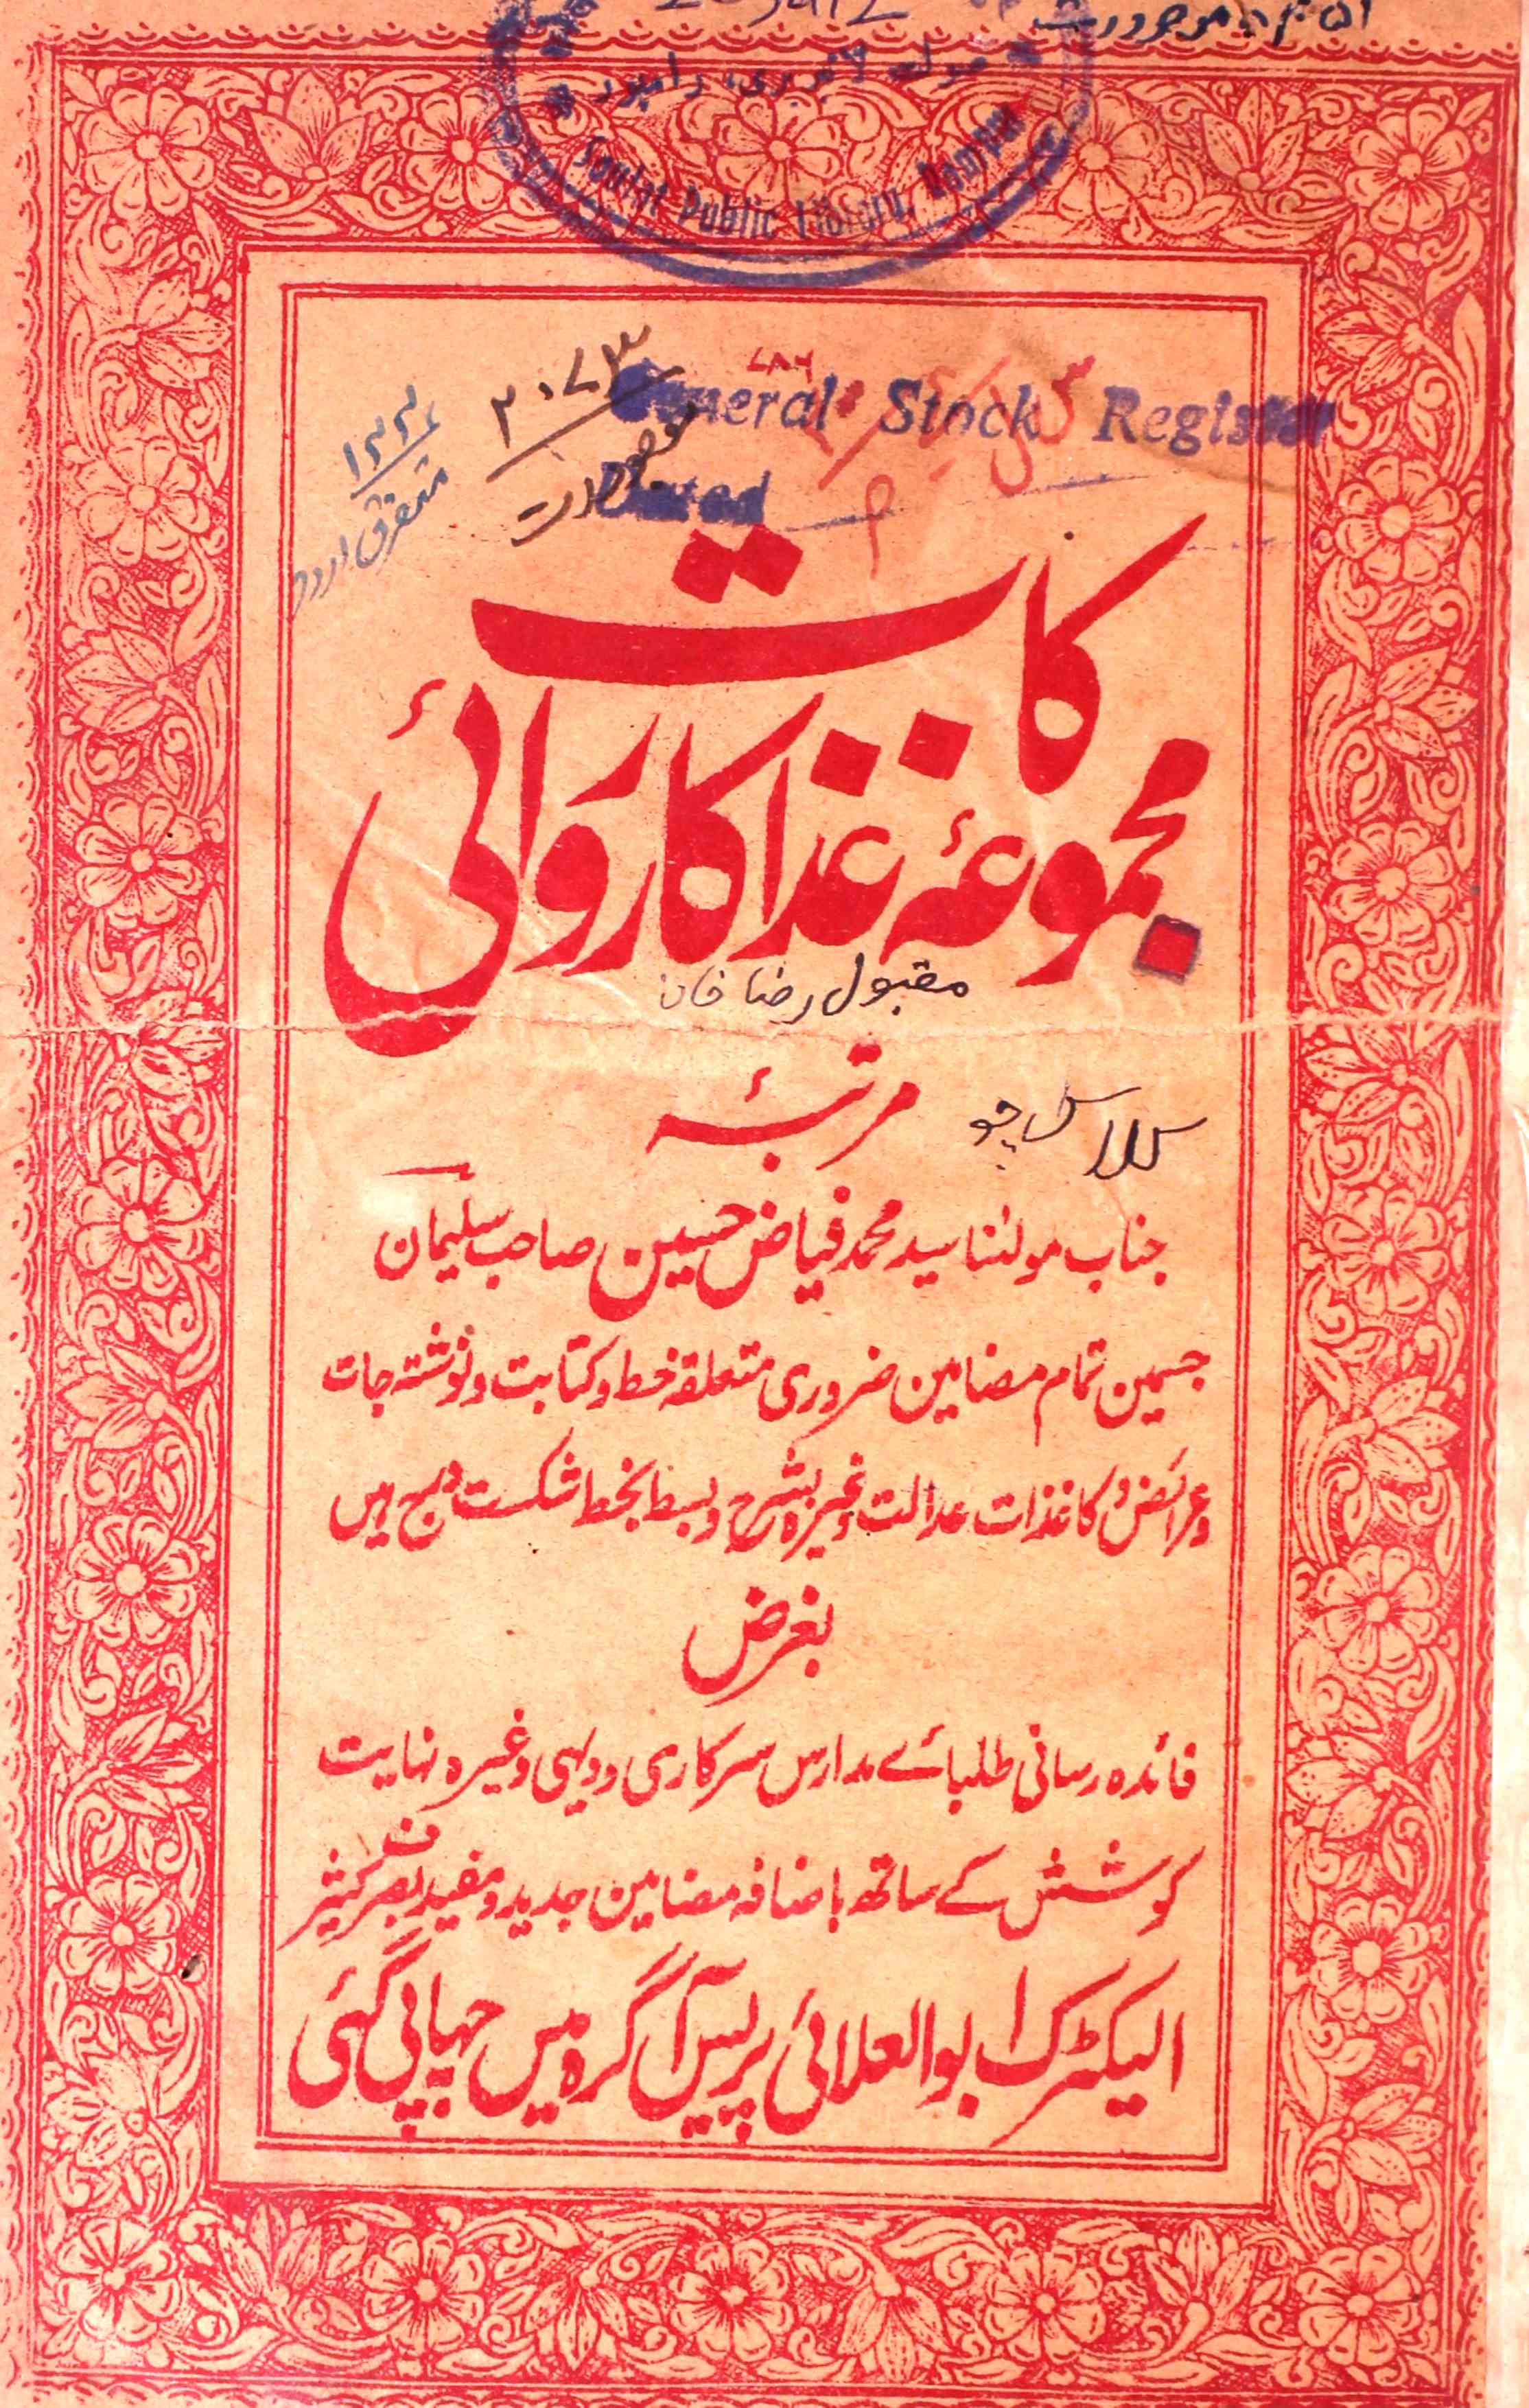 صولت لائبریری، رامپور
Soulat Public Library, Rampur
۷۸۶
General Stock Register
۲۰۷۳
Dated
متفرق اردو
مجموعۂ کاغذات کاروائی
مقبول رضا خان
مرتبۂ
کلاس
جناب مولٰنا سید محمد فیاض حسین صاحب سلیمان
جسمین تمام مضامین ضروری متعلقہ خط و کتابت و نوشتہ جات
و عرائض و کاغذات عدالت وغیرہ بشرح و بسط بخط شکست درج ہیں
بغرض
فائدہ رسانی طلبائے مدارس سرکاری و دیہی وغیرہ نہایت
کوشش کے ساتھ باضافہ مضامین جدید و مفید بصرف کثیر
الیکٹرک ابوالعلائی پریس آگرہ میں چھاپی گئی